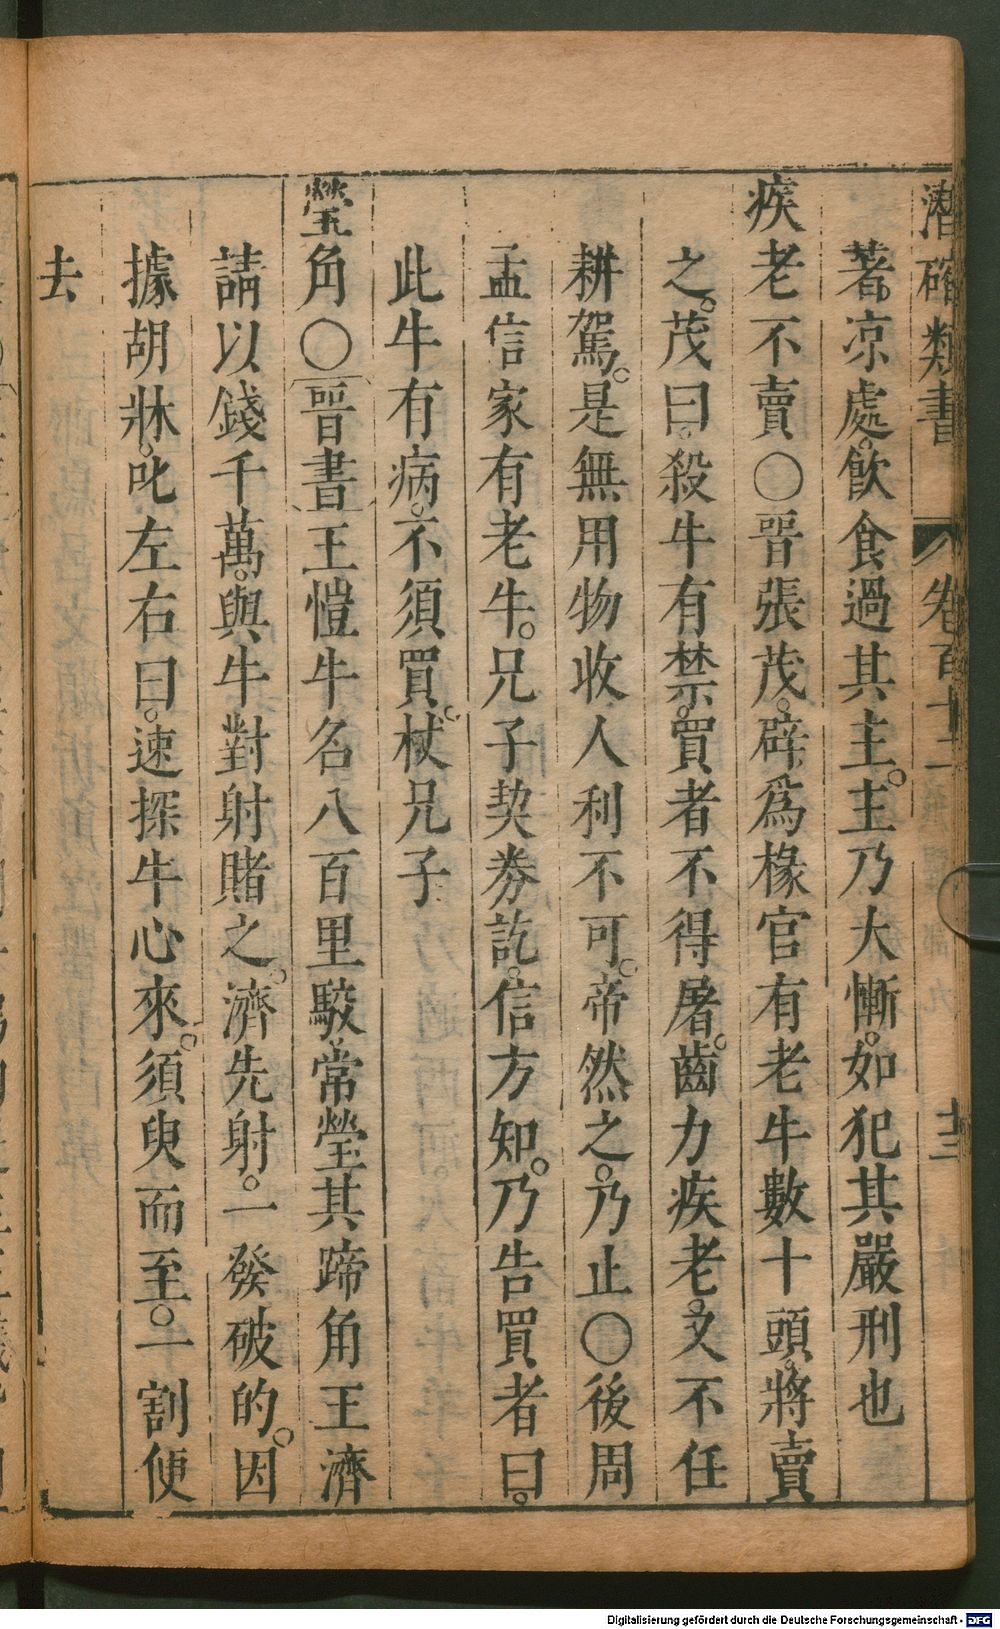 潛確類書 卷百十一 廿三
著凉處飲食過其主主乃大慚如犯其嚴刑也
疾老不賣〇晋張茂辟爲椽官有老牛數十頭將賣
之茂曰殺牛有禁買者不得屠齒力疾老又不任
耕駕是無用物收人利不可帝然之乃止〇後周
孟信家有老牛兄子契券訖信方知乃告買者曰
此牛有病不須買杖兄子
瑩角〇晉書王愷牛名八百里駮常瑩其蹄角王濟
請以錢千萬與牛對射賭之濟先射一發破的因
據胡牀叱左右曰速探牛心來須臾而至一割便
去
Digitalisierung gefördert durch die Deutsche Forschungsgemeinschaft - DFG